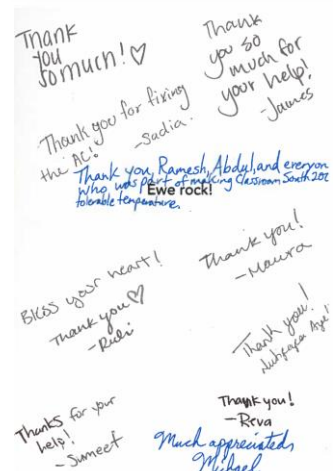 Thank
you
so much! ♡
Thank
you so
much for
your help!
-James
Thank you for fixing
the AC!
-Sadia
Thank you, Ramesh, Abdul, and everyone
who was part of making Classroom South 202
tolerable temperature.
Ewe rock!
Bless your heart!
Thank you ♡
-Ruli
Thank you!
-Maura
Thank you!
Thanks for your
help!
- Sumeet
Thank you!
-Reva
Much appreciated,
Michael